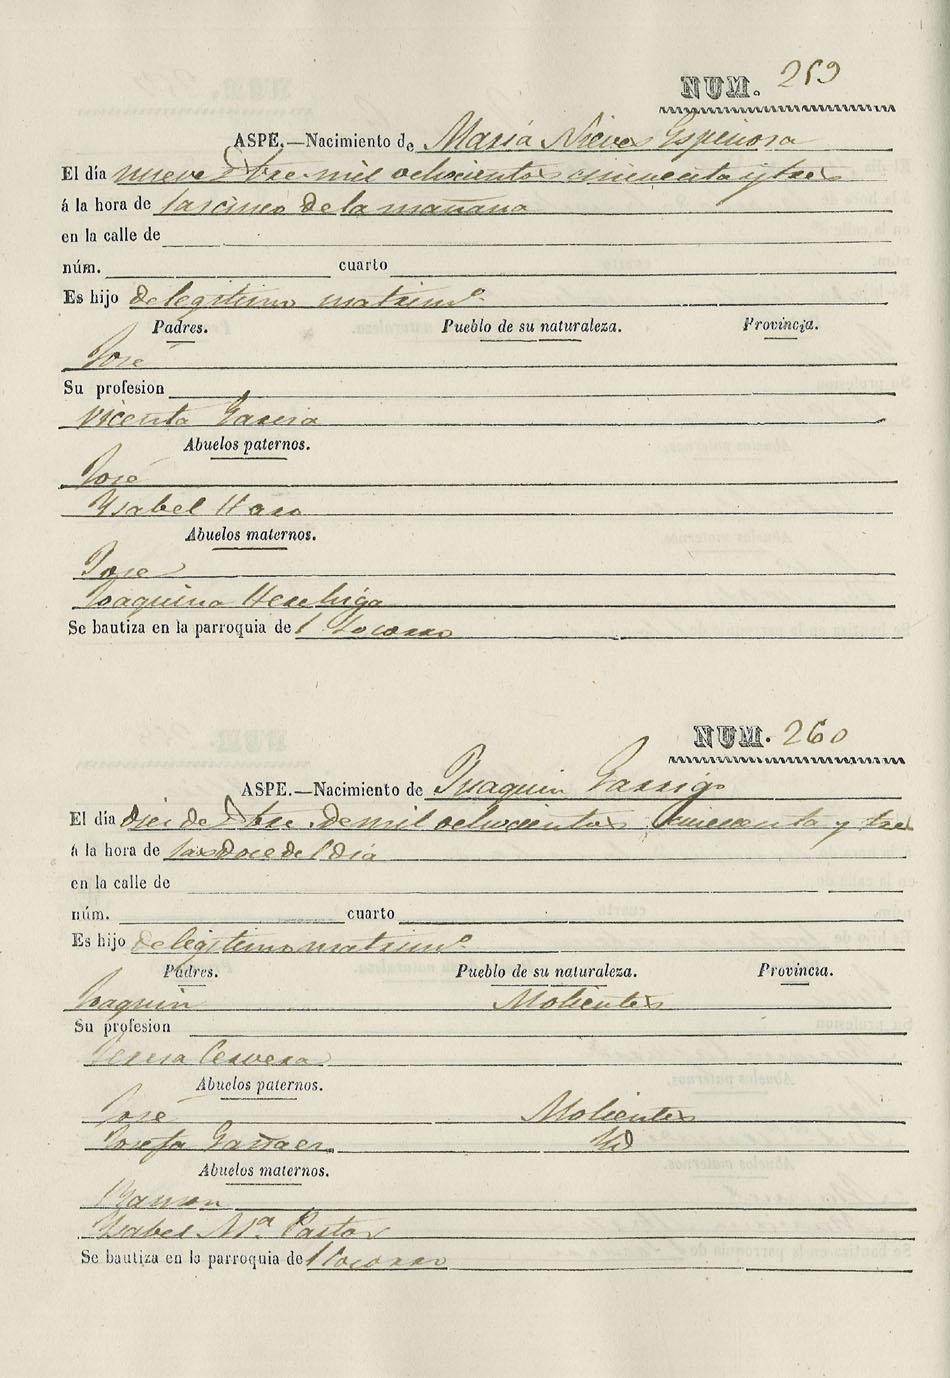 NUM. 259
ASPE.—Nacimiento de Maria Nieves Espinosa
El día nueve Dbre. mil ochocientos cincuenta y tres
á la hora de las cinco de la mañana
en la calle de
núm. cuarto
Es hijo de legitimo matrimº.
Padres. Pueblo de su naturaleza. Provincia.
José
Su profesion
Vicenta Garcia
Abuelos paternos.
José
Ysabel
Abuelos maternos.
José
Joaquina
Se bautiza en la parroquia del Socorro
NUM. 260
ASPE.—Nacimiento de Juaquin Garrigo
El día dies de Dbre. de mil ochocientos cincuenta y tres
á la hora de las doce del dia
en la calle de
núm. cuarto
Es hijo de legitimo matrimº.
Padres. Pueblo de su naturaleza. Provincia.
Joaquin Molientes
Su profesion
Teresa Cervera
Abuelos paternos.
José Molientes
Josefa Yd
Abuelos maternos.
Ramon
Ysabel Mª. Pastor
Se bautiza en la parroquia del Socorro